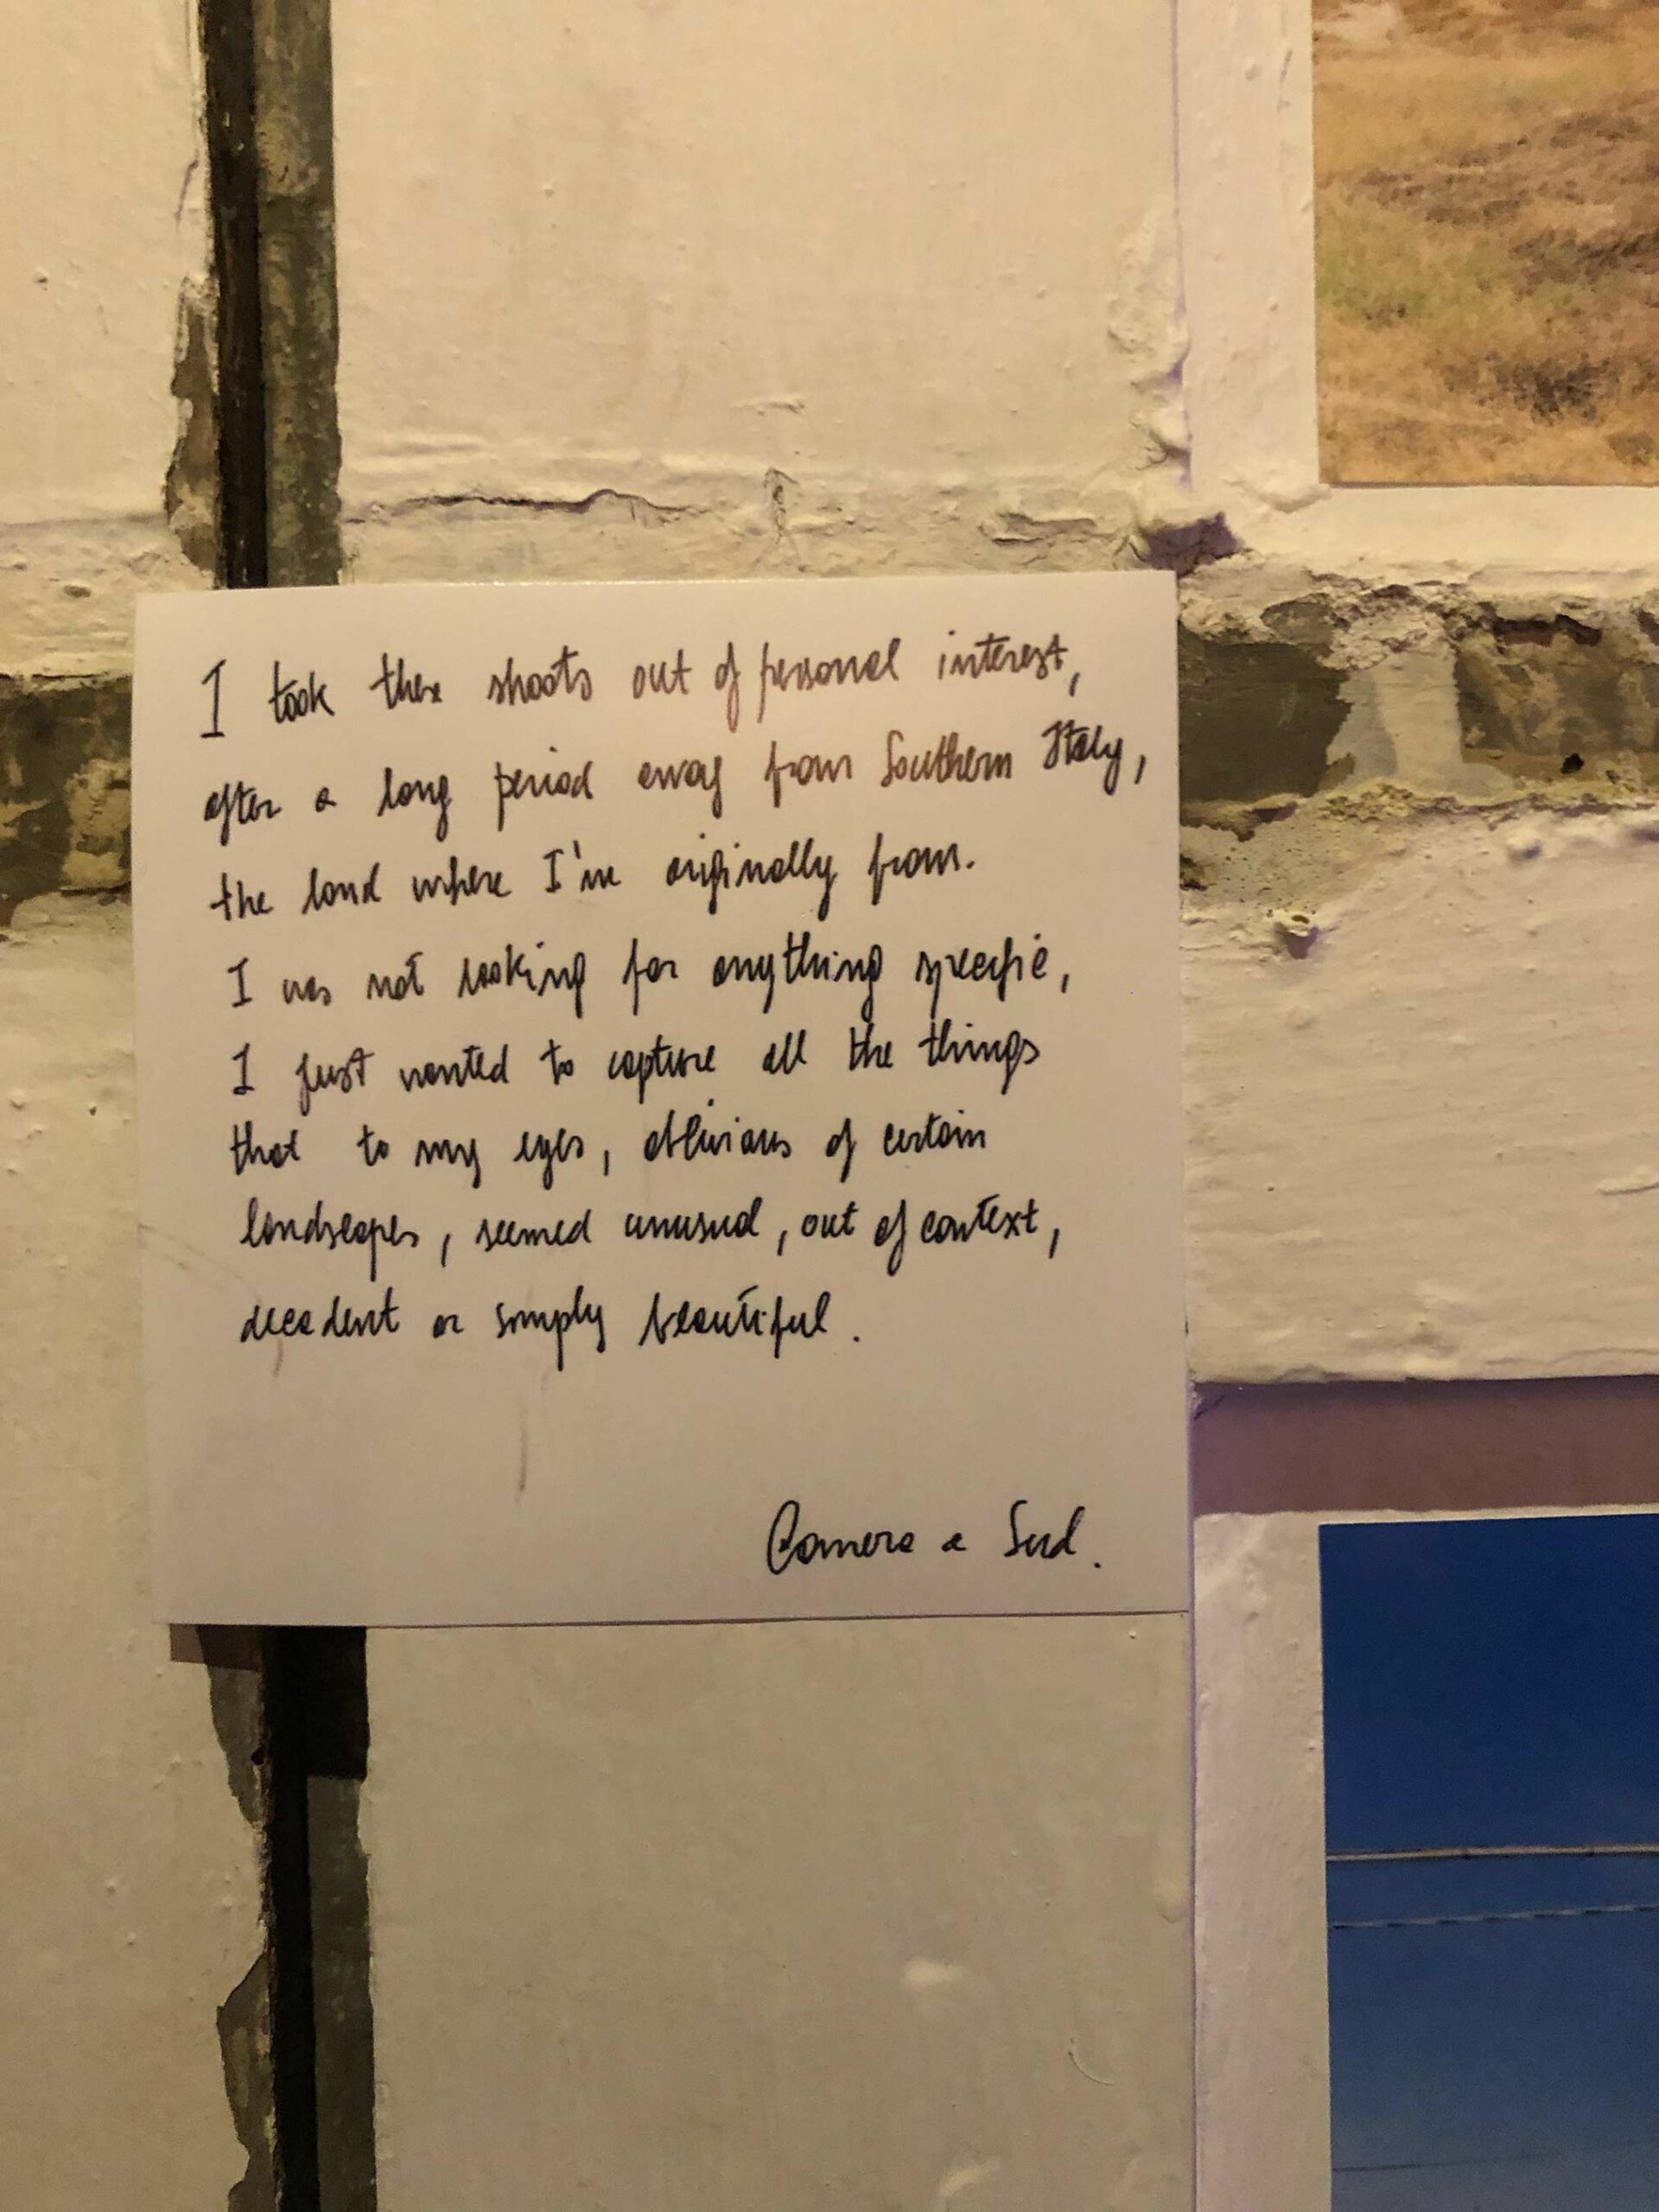 I took these shoots out of personal interest,
after a long period away from Southern Italy,
the land where I'm originally from.
I was not looking for anything specific,
I just wanted to capture all the things
that to my eyes, oblivious of certain
landscapes, seemed unusual, out of context,
decadent or simply beautiful.
Camera a Sud.